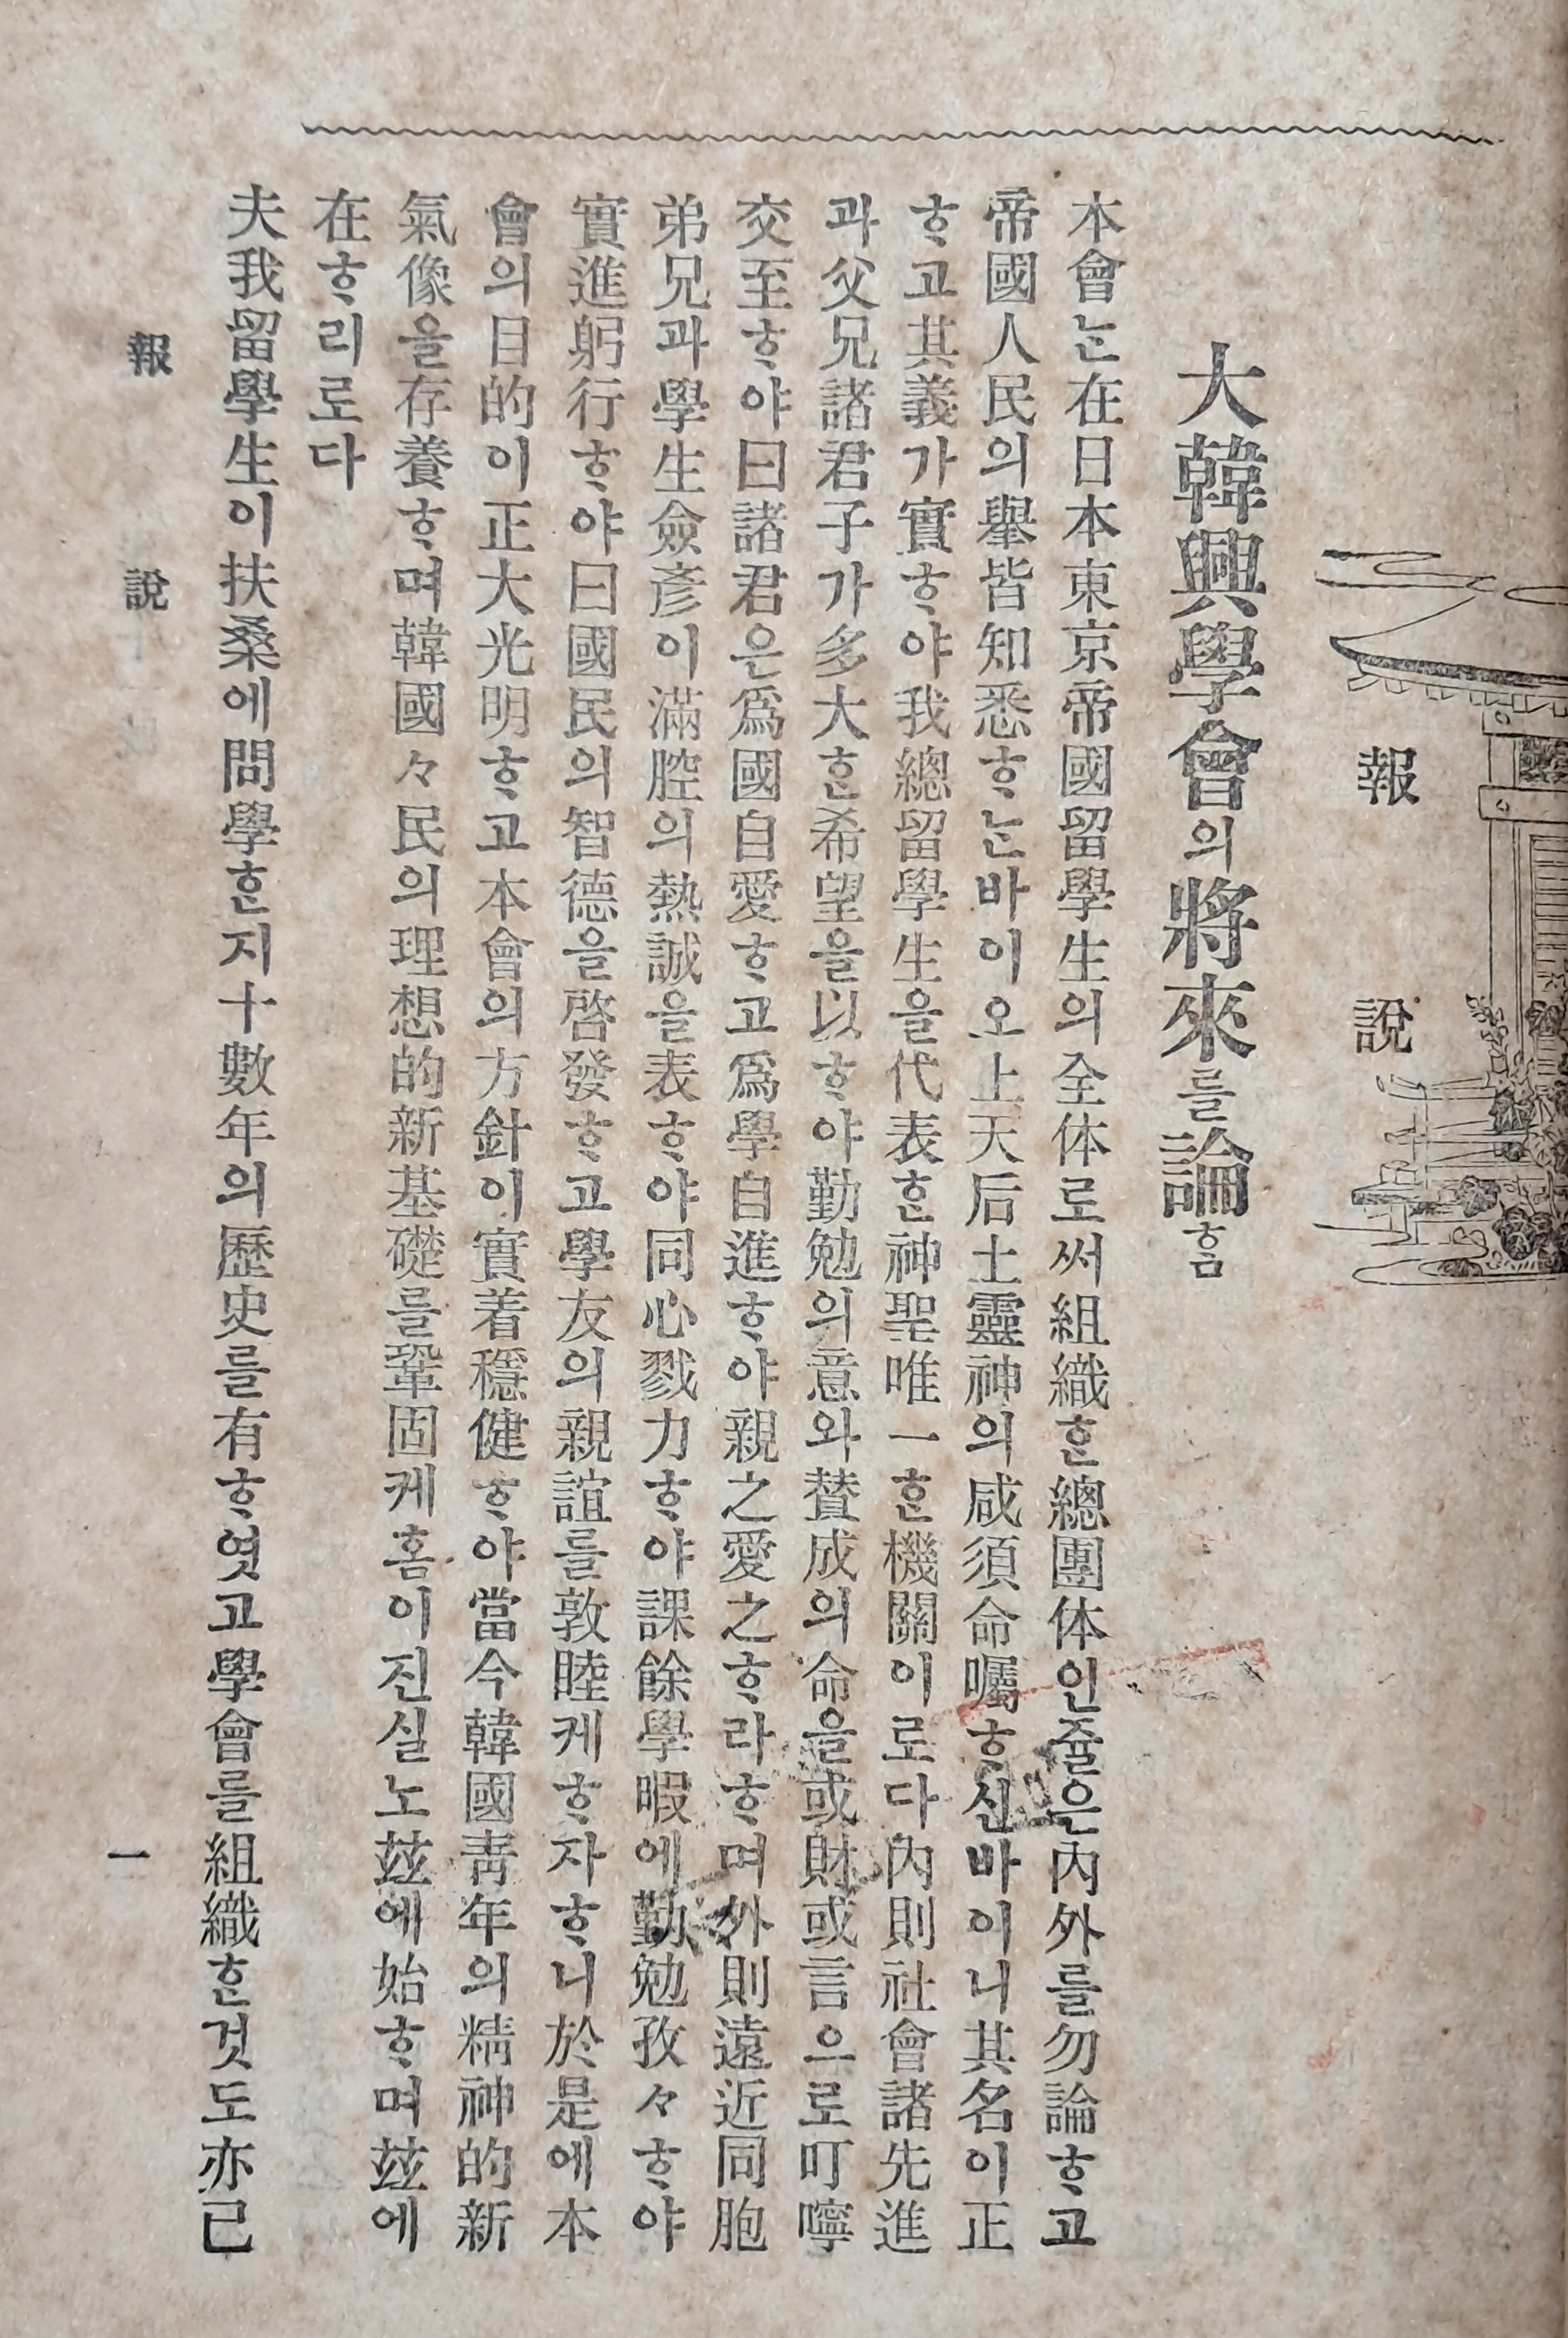 報說
大韓興學會의將來를論ᄒᆞᆷ
本會ᄂᆞᆫ在日本東京帝國留學生의全体로써組織ᄒᆞᆫ總團体인줄은內外를勿論ᄒᆞ고
帝國人民의擧皆知悉ᄒᆞᄂᆞᆫ바이오上天后土靈神의咸須命囑ᄒᆞ신바이니其名이正
ᄒᆞ고其義가實ᄒᆞ야我總留學生을代表ᄒᆞᆫ神聖唯一ᄒᆞᆫ機關이로다內則社會諸先進
과父兄諸君子가多大ᄒᆞᆫ希望을以ᄒᆞ야勤勉의意와賛成의命을或財或言으로叮嚀
交至ᄒᆞ야曰諸君은爲國自愛ᄒᆞ고爲學自進ᄒᆞ야親之愛之ᄒᆞ라ᄒᆞ며外則遠近同胞
弟兄과學生僉彥이滿腔의熱誠을表ᄒᆞ야同心戮力ᄒᆞ야課餘學暇에勤勉孜々ᄒᆞ야
實進躬行ᄒᆞ야曰國民의智德을啓發ᄒᆞ고學友의親誼를敦睦케ᄒᆞ자ᄒᆞ니於是에本
會의目的이正大光明ᄒᆞ고本會의方針이實着穩健ᄒᆞ야當今韓國靑年의精神的新
氣像을存養ᄒᆞ며韓國々民의理想的新基礎를鞏固케홈이진실노玆에始ᄒᆞ며玆에
在ᄒᆞ리로다
夫我留學生이扶桑에問學ᄒᆞᆫ지十數年의歷史를有ᄒᆞ엿고學會를組織ᄒᆞᆫ것도亦已
報說
一